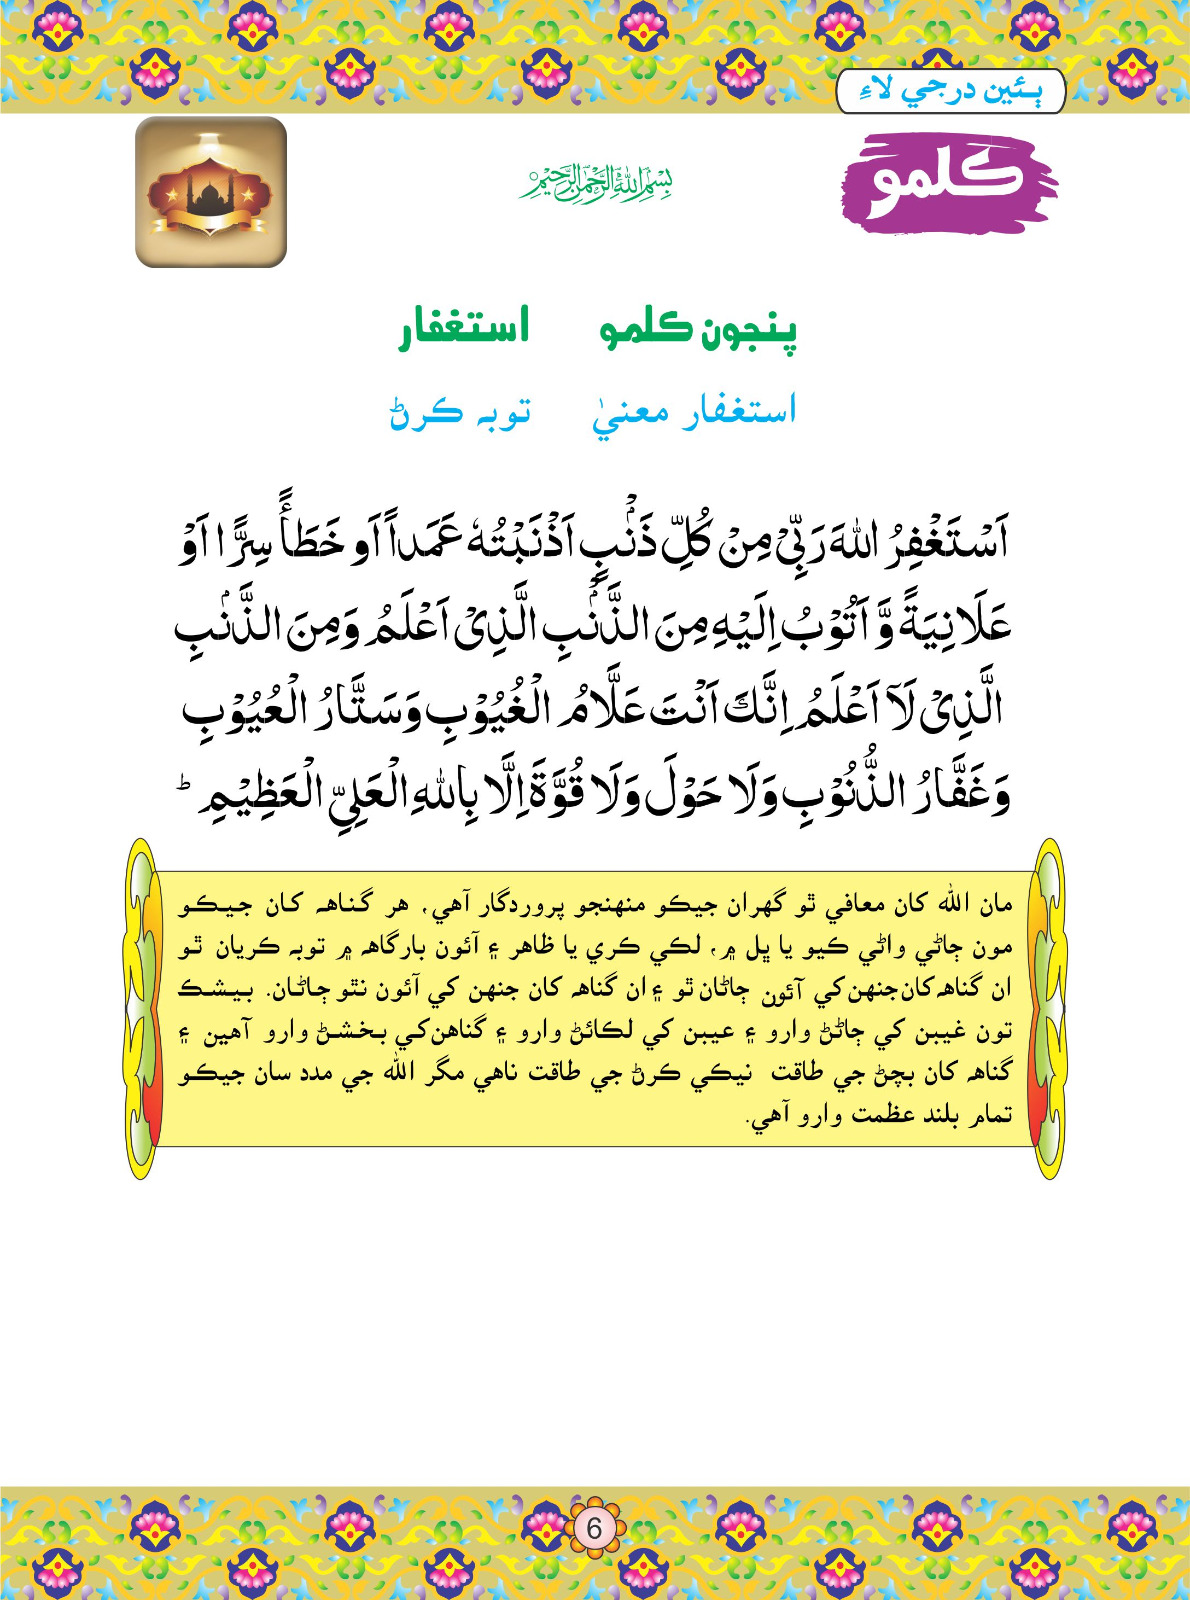 ٻئين درجي لاءِ
ڪلمو
بِسْمِ اللهِ الرَّحْمٰنِ الرَّحِيْمِ
پنجون ڪلمو استغفار
استغفار معنيٰ توبہ ڪرڻ
اَسْتَغْفِرُ اللهَ رَبِّىْ مِنْ كُلِّ ذَنْۢبٍ اَذْنَبْتُهٗ عَمَداً اَو خَطَأً سِرًّا اَوْ
عَلَانِيَةً وَّ اَتُوْبُ اِلَيْهِ مِنَ الذَّنْۢبِ الَّذِىْ اَعْلَمُ وَمِنَ الذَّنْۢبِ
الَّذِىْ لَآ اَعْلَمُ اِنَّكَ اَنْتَ عَلَّامُ الْغُيُوْبِ وَسَتَّارُ الْعُيُوْبِ
وَغَفَّارُ الذُّنُوْبِ وَلَا حَوْلَ وَلَا قُوَّةَ اِلَّا بِاللهِ الْعَلِىِّ الْعَظِيْمِ ؕ
مان الله کان معافي ٿو گهران جيڪو منهنجو پروردگار آهي، هر گناهہ کان جيڪو
مون ڄاڻي واڻي ڪيو يا ڀل ۾، لڪي ڪري يا ظاهر ۽ آئون بارگاهہ ۾ توبہ ڪريان ٿو
ان گناهہ کان جنهن کي آئون ڄاڻان ٿو ۽ ان گناهہ کان جنهن کي آئون نٿو ڄاڻان. بيشڪ
تون غيبن کي ڄاڻڻ وارو ۽ عيبن کي لڪائڻ وارو ۽ گناهن کي بخشڻ وارو آهين ۽
گناهہ کان بچڻ جي طاقت نيڪي ڪرڻ جي طاقت ناهي مگر الله جي مدد سان جيڪو
تمام بلند عظمت وارو آهي.
6